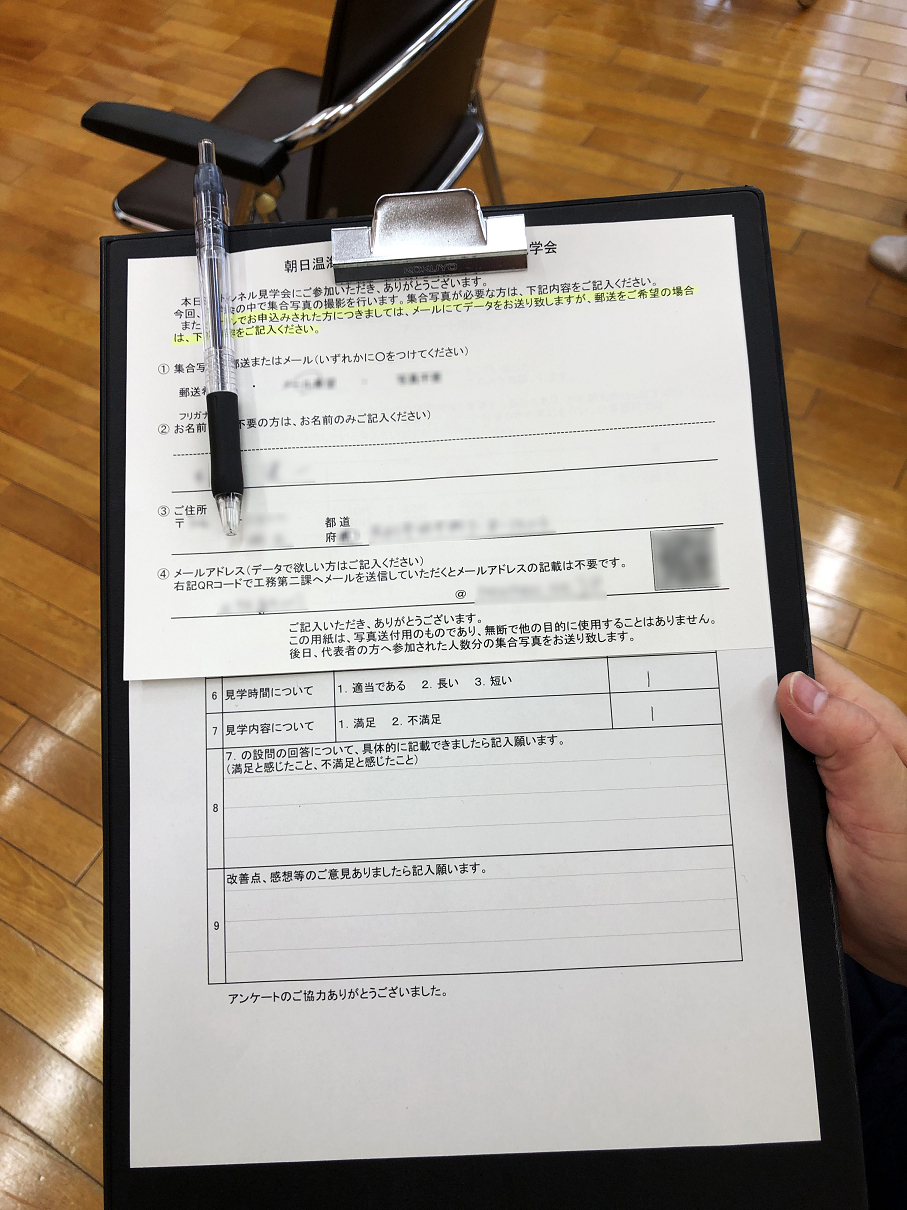 朝日温海 学会
KOKUYO
本日 ンネル見学会にご参加いただき、ありがとうございます。
今回、 会の中で集合写真の撮影を行います。集合写真が必要な方は、下記内容をご記入ください。
また ルでお申込みされた方につきましては、メールにてデータをお送り致しますが、郵送をご希望の場合
は、下 をご記入ください。
① 集合写 郵送またはメール(いずれかに○をつけてください)
郵送
フリガナ
② お名前 不要の方は、お名前のみご記入ください)
③ ご住所
〒 都 道
府
④ メールアドレス(データで欲しい方はご記入ください)
右記QRコードで工務第二課へメールを送信していただくとメールアドレスの記載は不要です。
@
ご記入いただき、ありがとうございます。
この用紙は、写真送付用のものであり、無断で他の目的に使用することはありません。
後日、代表者の方へ参加された人数分の集合写真をお送り致します。
6 見学時間について 1. 適当である 2. 長い 3. 短い 1
7 見学内容について 1. 満足 2. 不満足 1
8 7. の設問の回答について、具体的に記載できましたら記入願います。
(満足と感じたこと、不満足と感じたこと)
9 改善点、感想等のご意見ありましたら記入願います。
アンケートのご協力ありがとうございました。